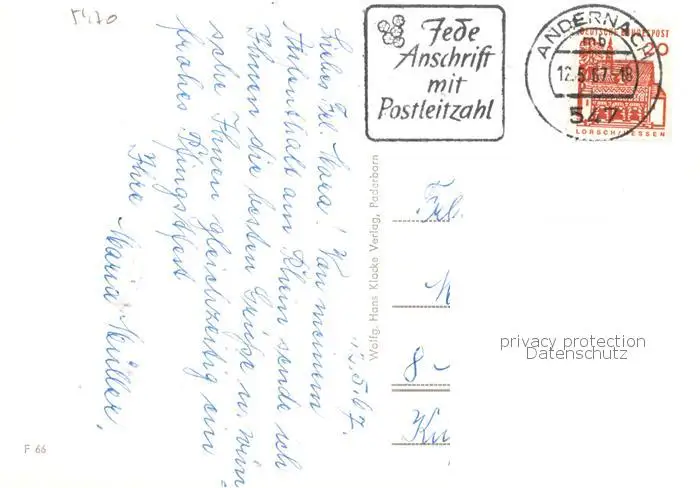 5470
Jede
Anschrift
mit
Postleitzahl
ANDERNACH
mb
12.5.67-18
547
DEUTSCHE BUNDESPOST
20
LORSCH/HESSEN
12.5.67.
Liebes Frl. Mara! Von meinem
Aufenthalt am Rhein sende ich
Ihnen die besten Grüße u. wün
sche Ihnen gleichzeitig ein
frohes Pfingstfest
Ihre
Maria Müller.
Wolfg. Hans Klocke Verlag, Paderborn
Frl.
8-
privacy protection
Datenschutz
F 66